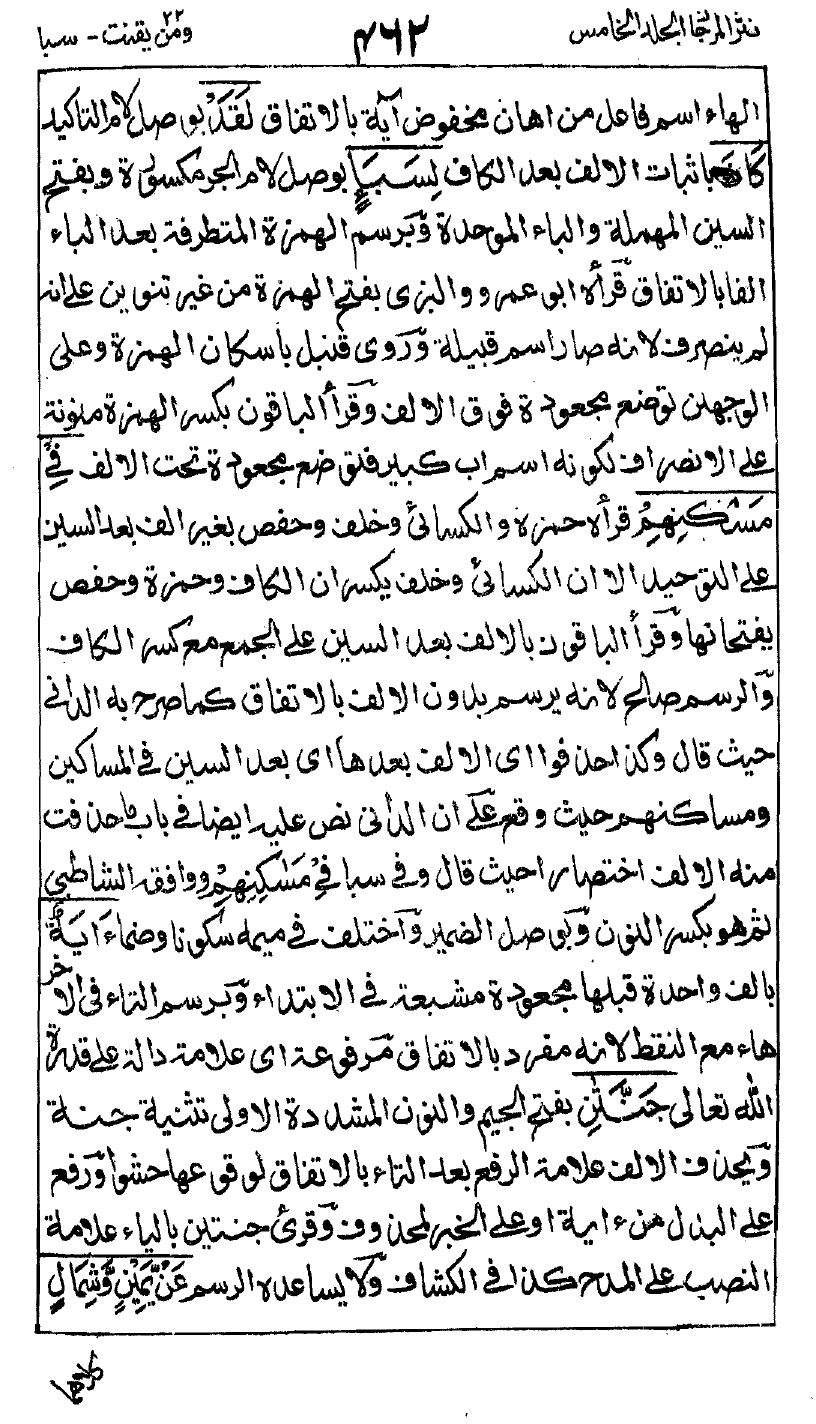 نثر المرجان المجلد الخامس ٤٦٢ ومن يقنت ٢٢ - سبا
الهاء اسم فاعل من اهان مخفوض آية بالاتفاق لَقَدْ بوصل لام التاكيد
كَانَ باثبات الالف بعد الكاف لِسَبَإٍ بوصل لام الجر مكسورة وبفتح
السين المهملة والباء الموحدة وبرسم الهمزة المتطرفة بعد الباء
الفا بالاتفاق قرأه ابو عمرو والبزى بفتح الهمزة من غير تنوين على انه
لم ينصرف لانه صار اسم قبيلة وروى قنبل باسكان الهمزة وعلى
الوجهين توضع مجعودة فوق الالف وقرأ الباقون بكسر الهمزة منونة
على الانصراف لكونه اسم اب كبير فتوضع مجعودة تحت الالف فِيْ
مَسْكَنِهِمْ قرأه حمزة والكسائى وخلف وحفص بغير الف بعد السين
على التوحيد الا ان الكسائى وخلف يكسران الكاف وحمزة وحفص
يفتحانها وقرأ الباقون بالالف بعد السين على الجمع مع كسر الكاف
والرسم صالح لانه يرسم بدون الالف بالاتفاق كما صرح به الدانى
حيث قال وكذا حذفوا اى الالف بعدها اى بعد السين فى المساكين
ومساكنهم حيث وقع على ان الدانى نص عليه ايضا فى باب ما حذفت
منه الالف اختصارا حيث قال وفى سبا فِيْ مَسٰكِنِهِمْ ووافقه الشاطبي
ثم هو بكسر النون وبوصل الضمير واختلف فى ميمه سكونا وضما ءَايَةٌ
بالف واحدة قبلها مجعودة مشبعة فى الابتداء وبرسم التاء فى الاخر
هاء مع النقط لانه مفرد بالاتفاق مرفوعة اى علامة دالة على قدرة
الله تعالى جَنَّتٰنِ بفتح الجيم والنون المشددة الاولى تثنية جنة
وبحذف الالف علامة الرفع بعد التاء بالاتفاق لوقوعها حشوا ورفع
على البدل من ءاية او على الخبر لمحذوف وقرئ جنتين بالياء علامة
النصب على المدح كذا فى الكشاف ولا يساعده الرسم عَنْ يَّمِيْنٍ وَّشِمَالٍ